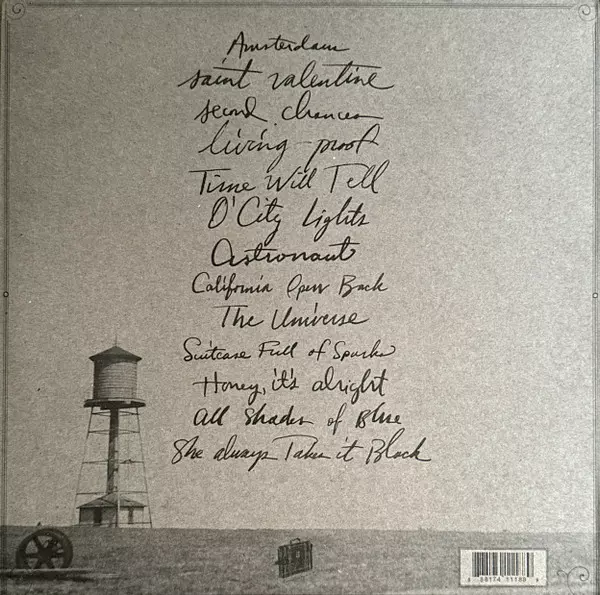 Amsterdam
saint valentine
second chances
living proof
Time Will Tell
O' City Lights
Astronaut
California Open Back
The Universe
Suitcase Full of Sparks
Honey, it's alright
All Shades of Blue
She always Takes it Black